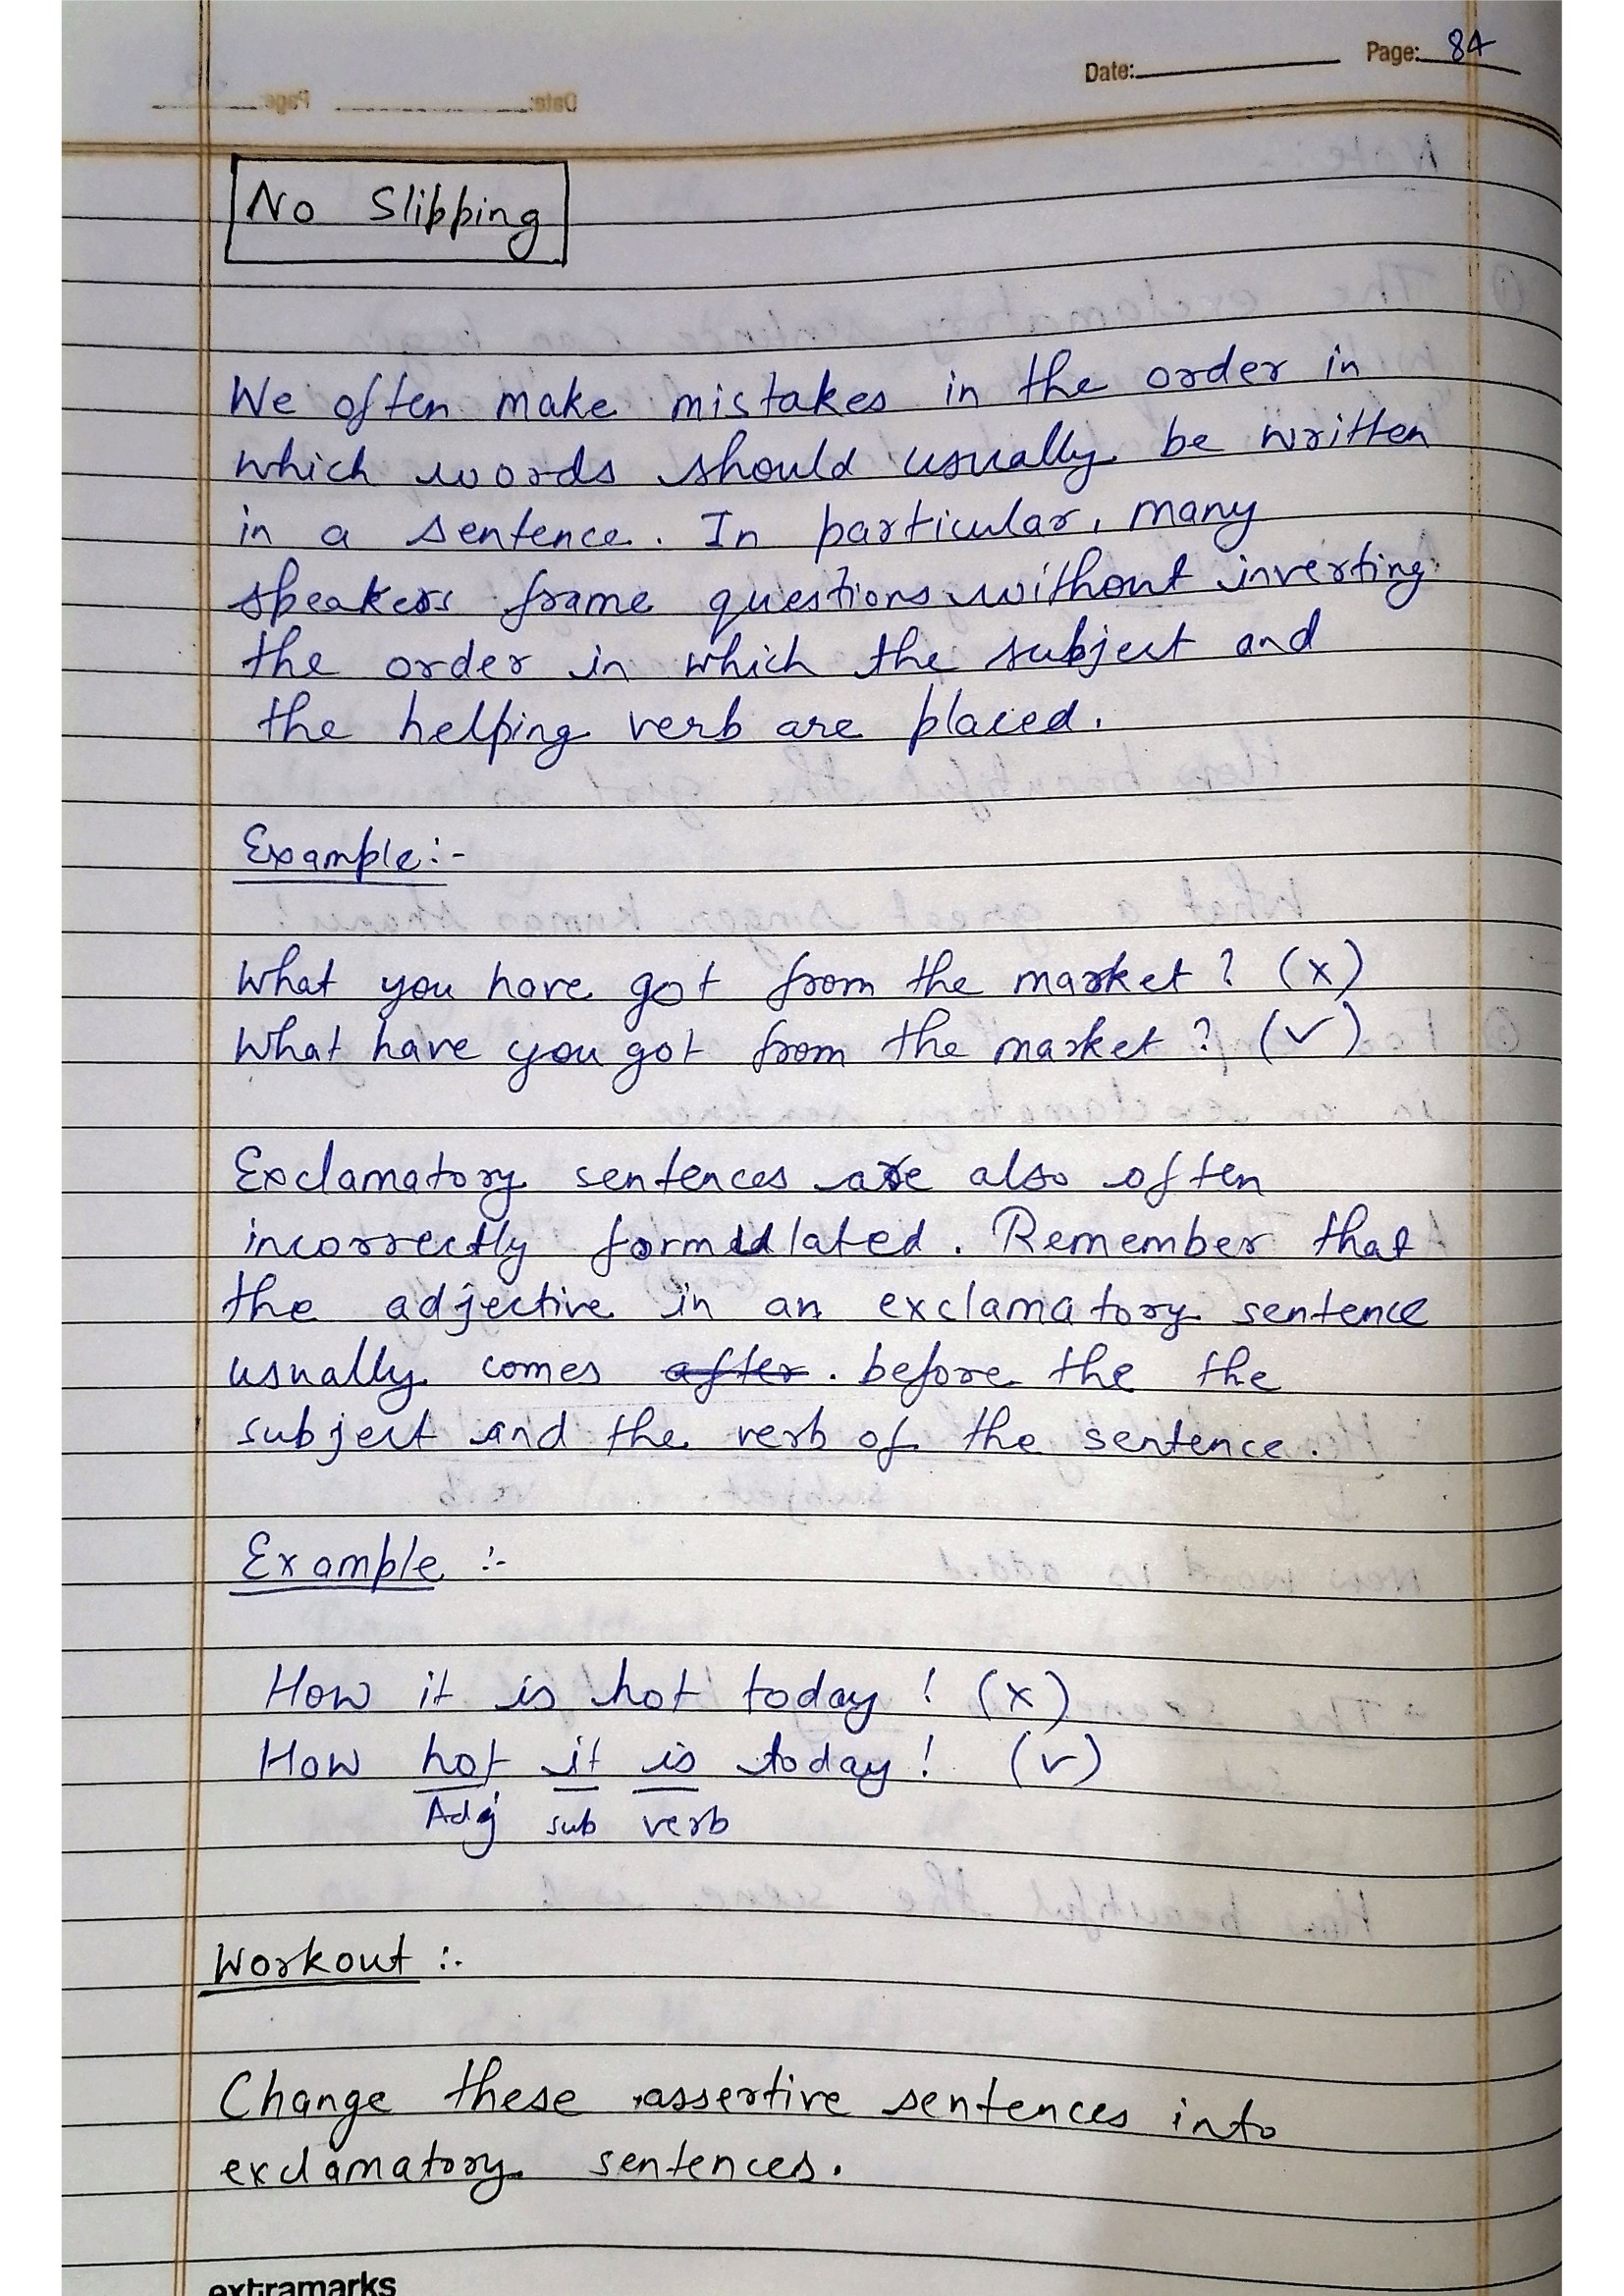 Date: Page: 84
No Slipping
We often make mistakes in the order in
which words should usually be written
in a sentence. In particular, many
speakers frame questions without inverting
the order in which the subject and
the helping verb are placed.
Example:-
What you have got from the market? (x)
What have you got from the market? (✓)
Exclamatory sentences are also often
incorrectly formulated. Remember that
the adjective in an exclamatory sentence
usually comes after. before the the
subject and the verb of the sentence.
Example :-
How it is hot today! (x)
How hot it is today! (✓)
Adj sub verb
Workout :-
Change these assertive sentences into
exclamatory sentences.
extramarks